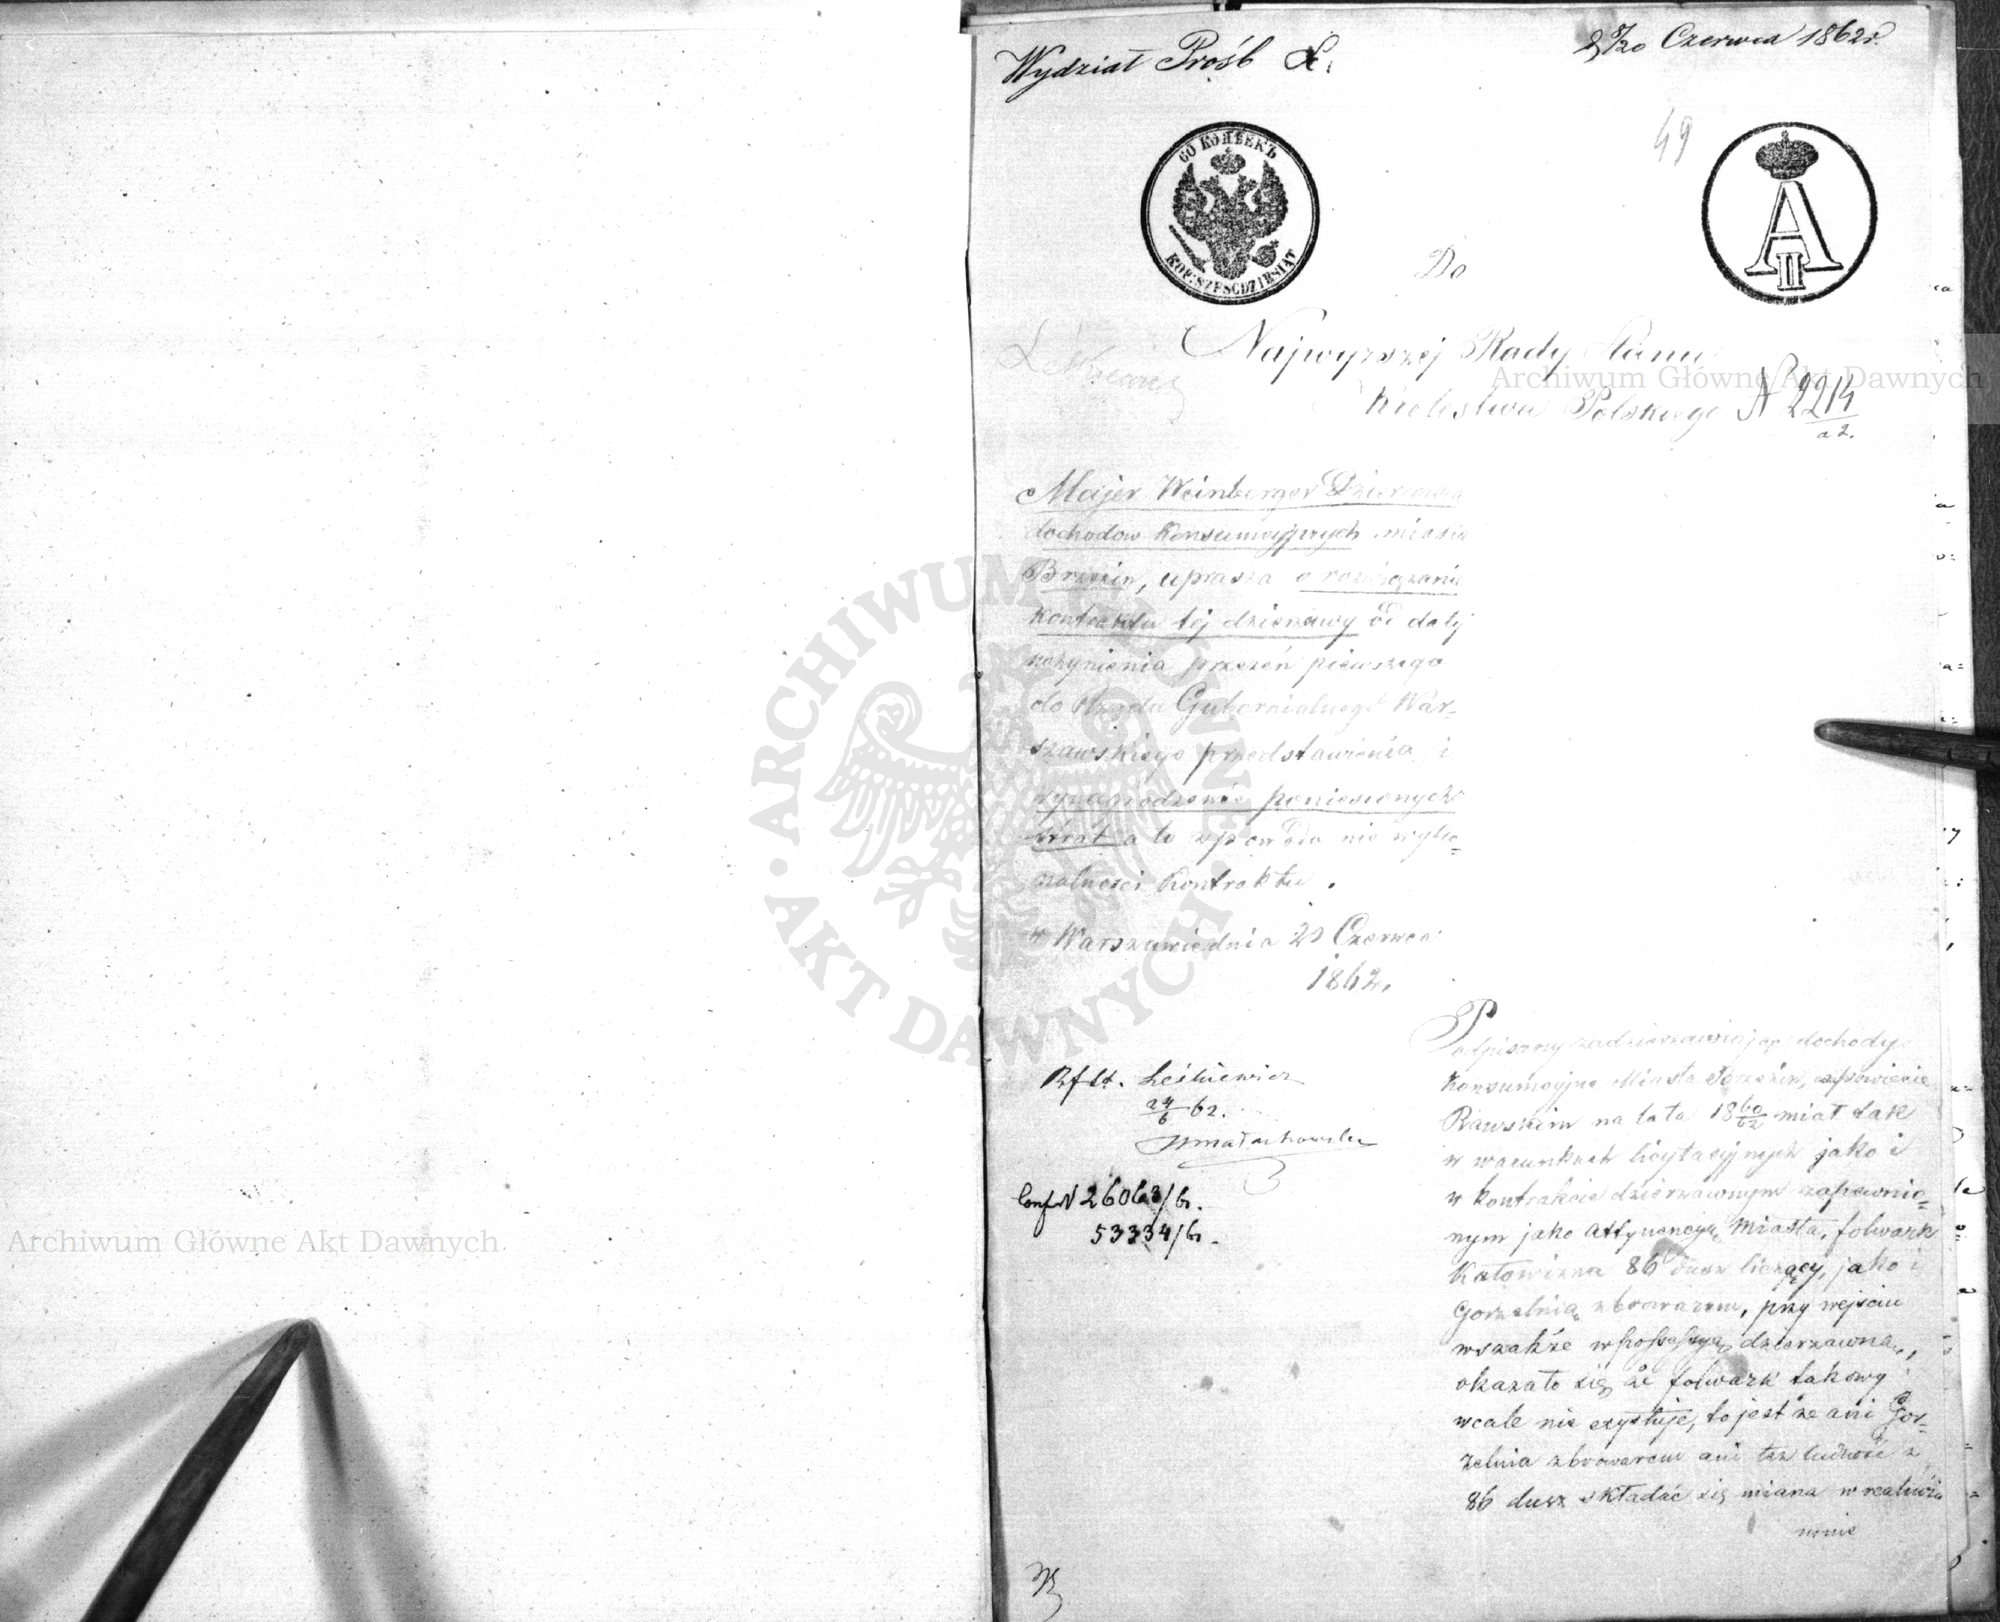 Wydział Próśb
8/20 Czerwca 1862 r.
49
60 КОПѢЕКЪ
KOP: SZEŚĆDZIESIĄT
A II
Do
Najwyższej Rady Stanu
Królestwa Polskiego N 2214
Majer Weinberger Dzierżawca
dochodow Konsumcyjnych miasta
Brzezin, uprasza o rozwiązanie
Kontraktu tej dzierzawy od daty
uczynienia przezeń pierwszego
do Rządu Gubernialnego War-
szawskiego przedstawienia i
wynagrodzenie poniesionych
strat a to z powodu nie wyko=
nalności Kontraktu.
w Warszawie dnia 20 Czerwca
1862.
Podpisany zadzierzawiając dochody
Konsumcyjne Miasta Brzezin, w powiecie
Rawskim na lata 18 60/62 miał tak
w warunkach licytacyjnych jako i
w kontrakcie dzierzawnym zapewnio=
nym jako attynencyą Miasta, folwark
86 dusz liczący, jako i
Gorzelnią z browarem, przy wejściu
wszakże w possessyą dzierzawną,
okazało się że folwark takowy
wcale nie exystuje, to jest że ani Gor=
zelnia z browarem ani też ludność z
86 dusz składać się miana w realności
Rfdt. Leśkiewicz
24/6 62.
26063/61.
53334/61.
Archiwum Główne Akt Dawnych
ARCHIWUM GŁÓWNE AKT DAWNYCH
Archiwum Główne Akt Dawnych